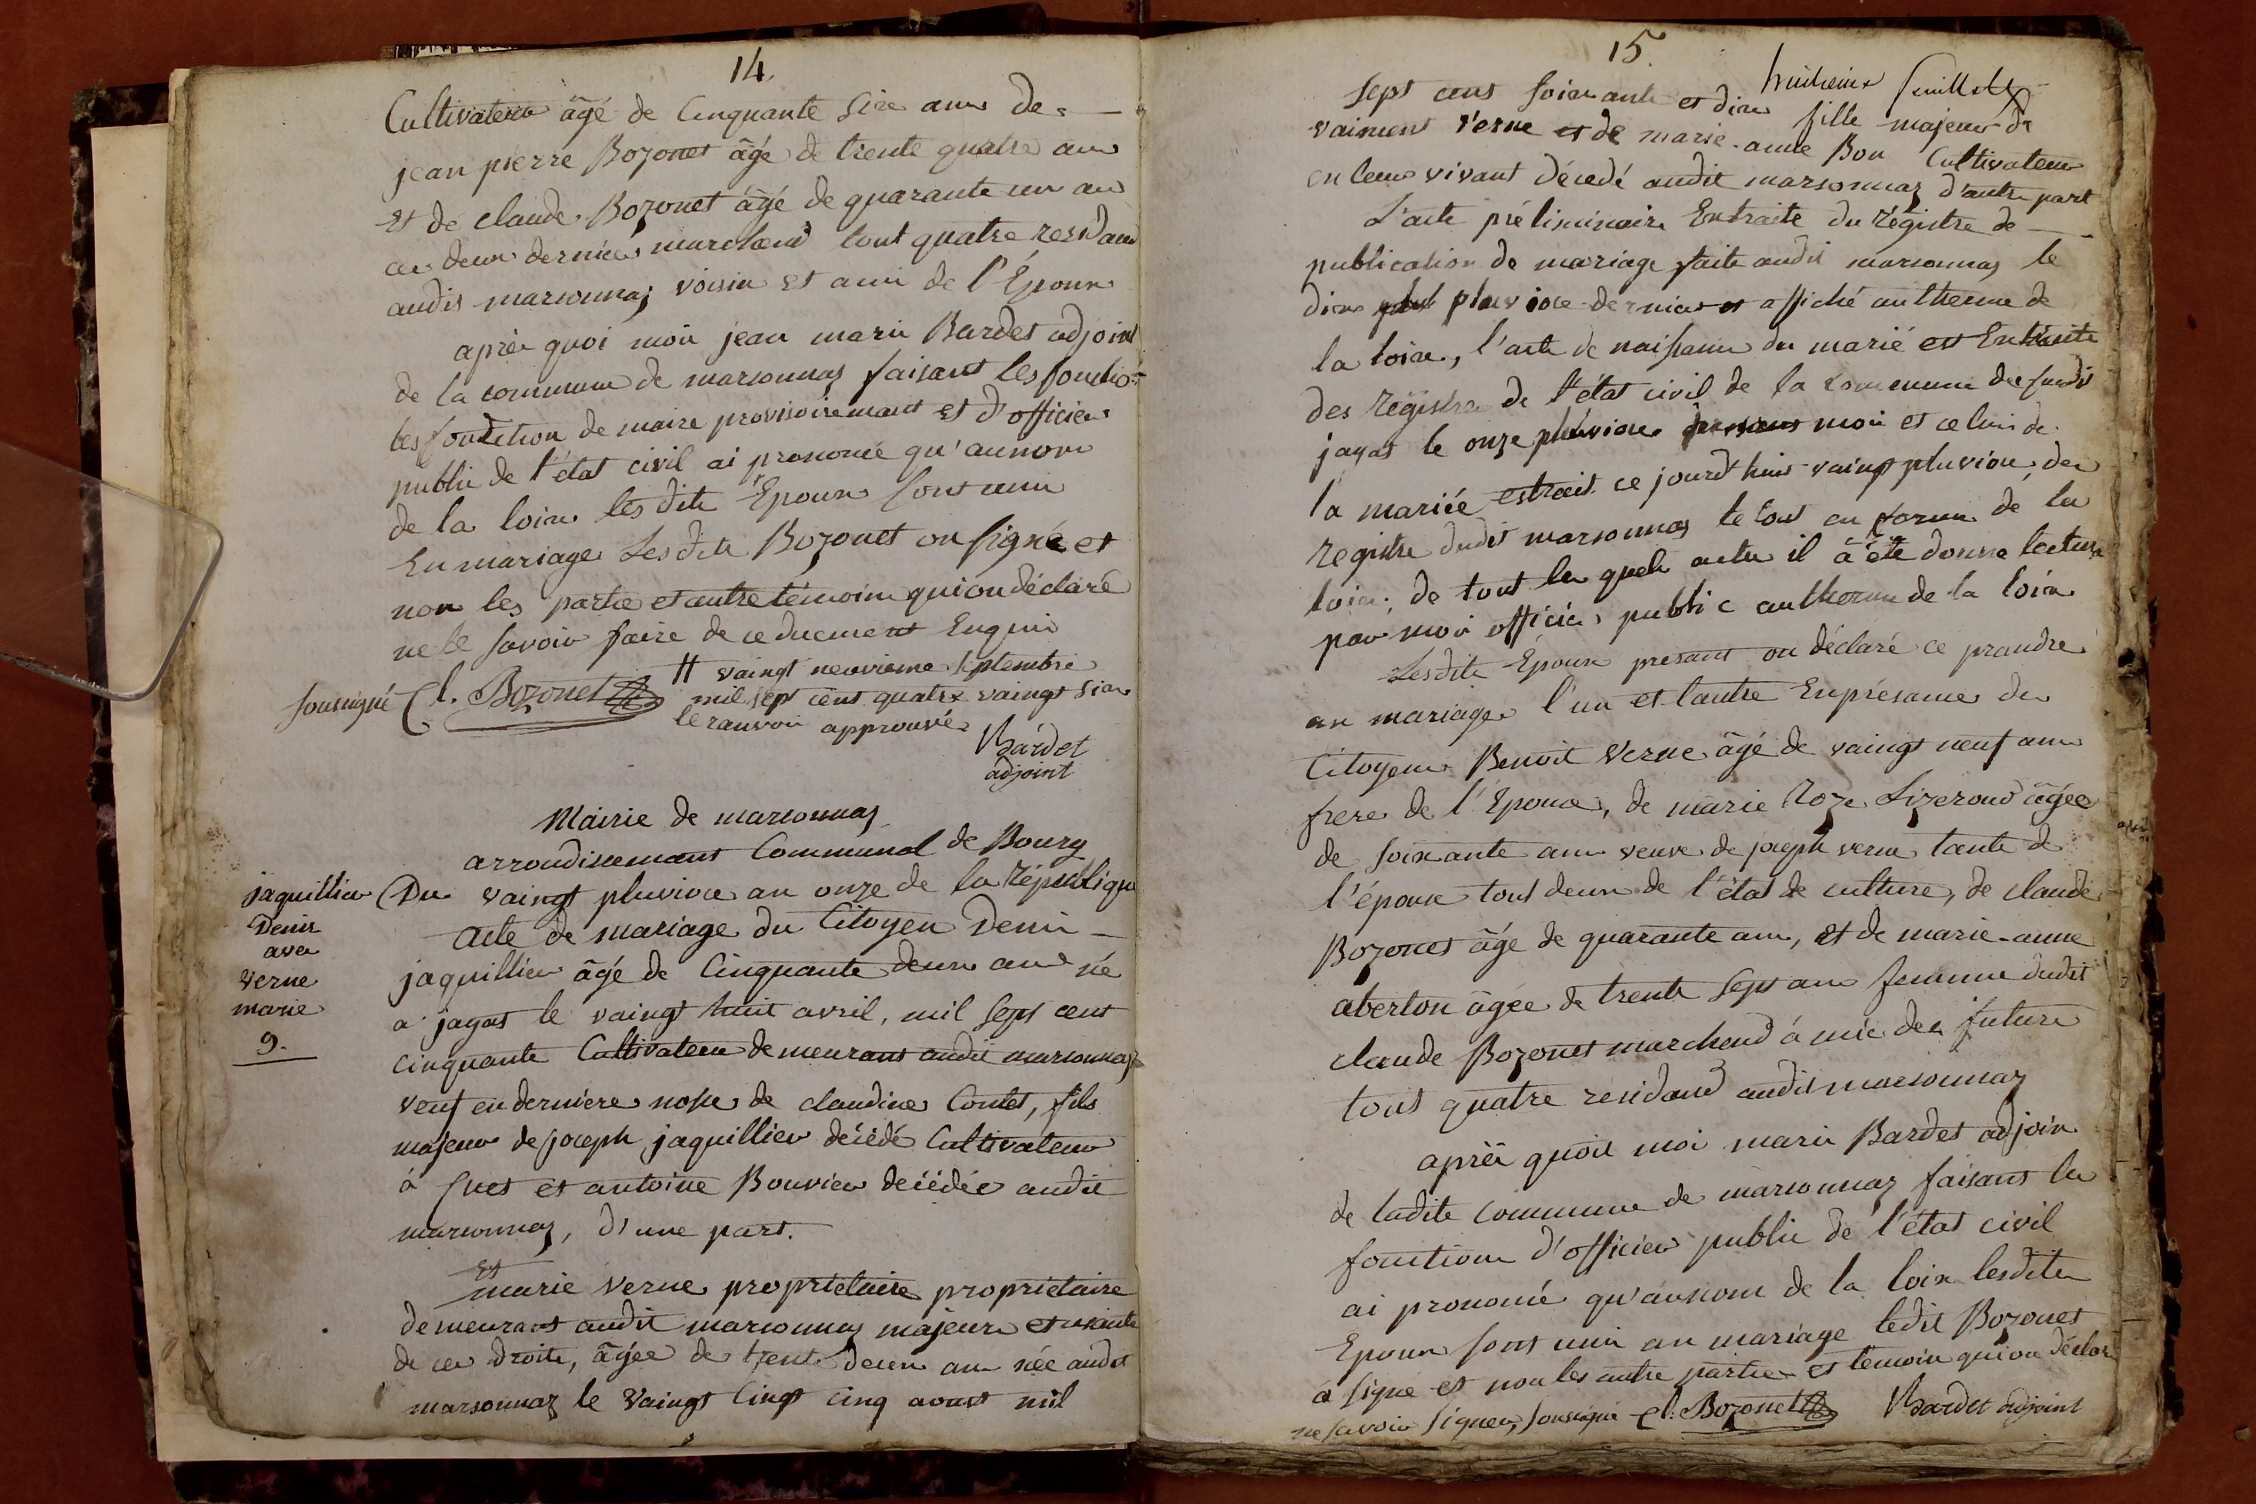 14.
Cultivateur âgé de Cinquante Sixe ans de
jean pierre Bozonet âgé de trente quatre ans
et de claude Bozonet âgé de quarante un an
ces deux dernier marchand tout quatre residans
audit marsonnaz voisin et ami de l'Épour
après quoi moi jean marie Bardet adjoint
de la commune de marsonnaz faisant les fonctio
les fonction de maire provisoirement et d'officier
public de l'état civil ai prononcé qu'aunom
de la loix lesdits Époux sont unis
En mariage Lesdits Bozonet on signé et
non les partie et autre témoin qui on déclaré
ne le savoir faire de ce duement Enquis
soussigné Cl. Bozonet
# vaingt neuvieme septembre
mil sept cens quatre vaingt six
le ranvoi approuvé
Bardet
adjoint
Mairie de marsonnaz
arrondissemant Communal de Bourg
jaquillier
Denis
avec
verne
marie
9.
Du vaingt pluviose an onze de la République
acte de mariage du Citoyen Denis
jaquillier âgé de Cinquante deux ans né
a jayat le vaingt huit avril, mil sept cent
cinquante Cultivateur demeurant audit marsonnaz
veuf en derniere nosse de claudine Contet, fils
majeur de joseph jaquillier décédé Cultivateur
à Cuet et antoine Bouvier décédée audit
marsonnaz, d'une part.
Et
marie verne propriétaire propriétaire
demeurant audit marsonnaz majeure et usante
de ces droits, âgée de trente deux ans née audit
marsonnaz le vaingt Cingt cinq aoust mil
15.
huitieme feuillet
sept cens soixante et dix fille majeur de
vaincent verne et de marie-anne Bon Cultivateur
en leur vivant décedé audit marsonnaz d'autre part
L'acte préliminaire Extraite du régistre de
publication de mariage faite audit marsonnaz le
dix pluviose dernier et affiché au therme de
la loix, l'acte de naissance du marié est Extraite
des régistre de l'état civil de la commune de
jayat le onze pluviose moi et celui de
la mariée estrait ce jourd'huis vaingt pluviose des
registre dudit marsonnaz le tout en forme de la
loix; de tout les quels actes il à été donné lecture
par moi officier public au therme de la loix
Lesdits Époux presant on déclaré ce prandre
en mariage l'un et l'autre En présance des
Citoyens Benoit Verne âgé de vaingt neuf ans
frere de l'Épouse, de marie Roze Lizeroud âgée
de soixante ans veuve de joseph verne tante de
l'épouse tous deux de l'état de culture, de claude
Bozonet âgé de quarante ans, et de marie-anne
aberton âgée de trente sept ans femme dudit
claude Bozonet marchand à mie des future
tous quatre residand audit marsonnaz
après quoit moi marie Bardet adjoin
de ladite commune de marsonnaz faisant les
fonctions d'officier public de l'état civil
ai prononcé qu'aunom de la loix lesdits
Epoux sont unis an mariage ledit Bozonet
à signé et non les autre parties et temoin qui on déclaré
ne savoir signer, soussigné Cl. Bozonet Bardet adjoint